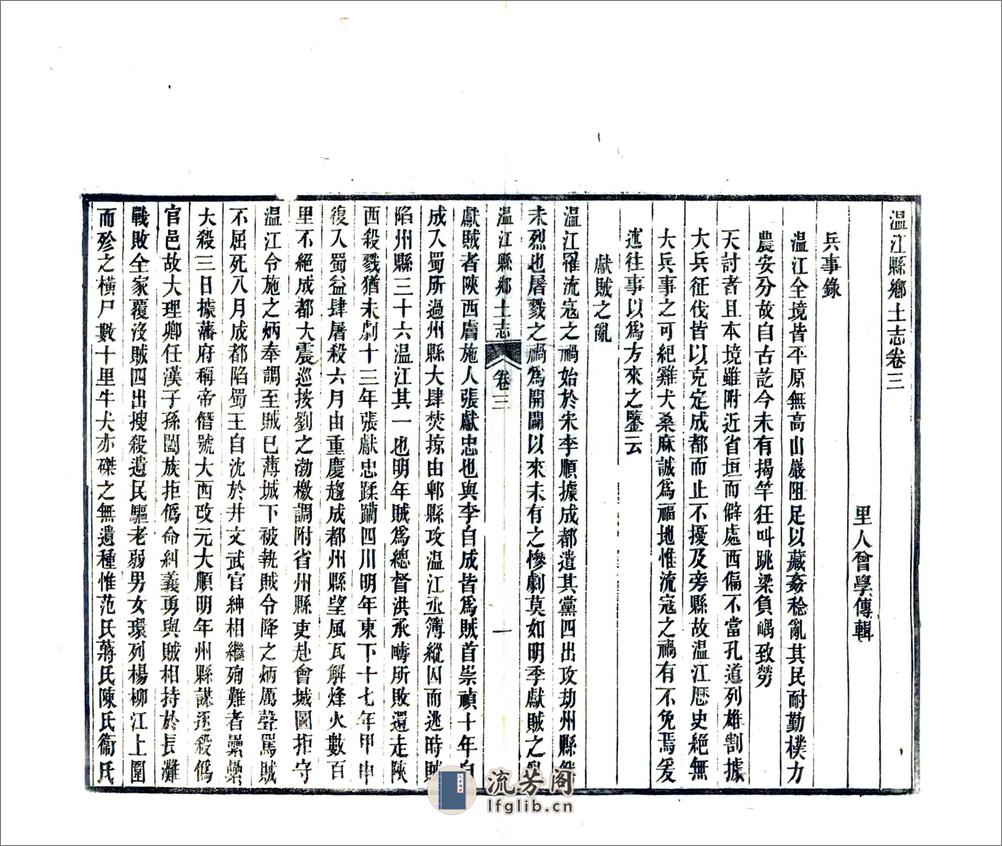 溫江縣鄉土志卷三
里人曾學傳輯
兵事錄
溫江全境皆平原無高山嚴阻足以藏姦稔亂其民耐勤樸力
農安分故自古訖今未有揭竿狂叫跳梁負嵎致勞
天討者且本境雖附近省垣而僻處西偏不當孔道列雄割據
大兵征伐皆以克定成都而止不擾及旁縣故溫江歷史絕無
大兵事之可紀雞犬桑麻誠為福地惟流寇之禍有不免焉爰
述往事以為方來之鑒云
獻賊之亂
溫江罹流寇之禍始於宋李順據成都遣其黨四出攻劫州縣然
未烈也屠戮之禍為開闢以來未有之慘劇莫如明季獻賊之亂
溫江縣鄉土志
卷三
一
獻賊者陝西膚施人張獻忠也與李自成皆為賊首崇禎十年自
成入蜀所過州縣大肆焚掠由郫縣攻溫江丞簿縱囚而逃時賊
陷州縣三十六溫江其一也明年賊為總督洪承疇所敗還走陝
西殺戮猶未劇十三年張獻忠蹂躪四川明年東下十七年甲申
復入蜀益肆屠殺六月由重慶趨成都州縣望風瓦解烽火數百
里不絕成都大震巡按劉之渤檄調附省州縣吏赴會城圖拒守
溫江令施之炳奉調至賊已薄城下被執賊令降之炳厲聲罵賊
不屈死八月成都陷蜀王自沈於井文武官紳相繼殉難者纍纍
大殺三日據藩府稱帝僭號大西改元大順明年州縣謀孫殺偽
官邑故大理卿任漢子孫闔族拒偽命糾義勇與賊相持於長灘
戰敗全家覆沒賊四出搜殺遺民驅老弱男女環列楊柳江上圍
而殄之橫尸數十里牛犬亦磔之無遺種惟范氏蔣氏陳氏衞氏
流芳阁
lfglib.cn